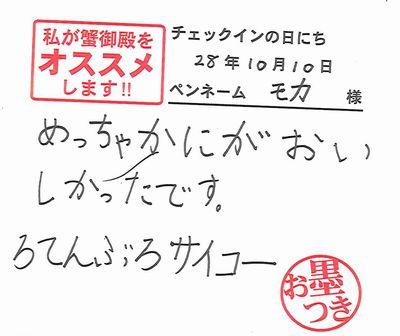 私が蟹御殿を
オススメ
します!!
チェックインの日にち
28年10月10日
ペンネーム モカ 様
めっちゃかにがおい
しかったです。
ろてんぶろサイコー
お墨つき